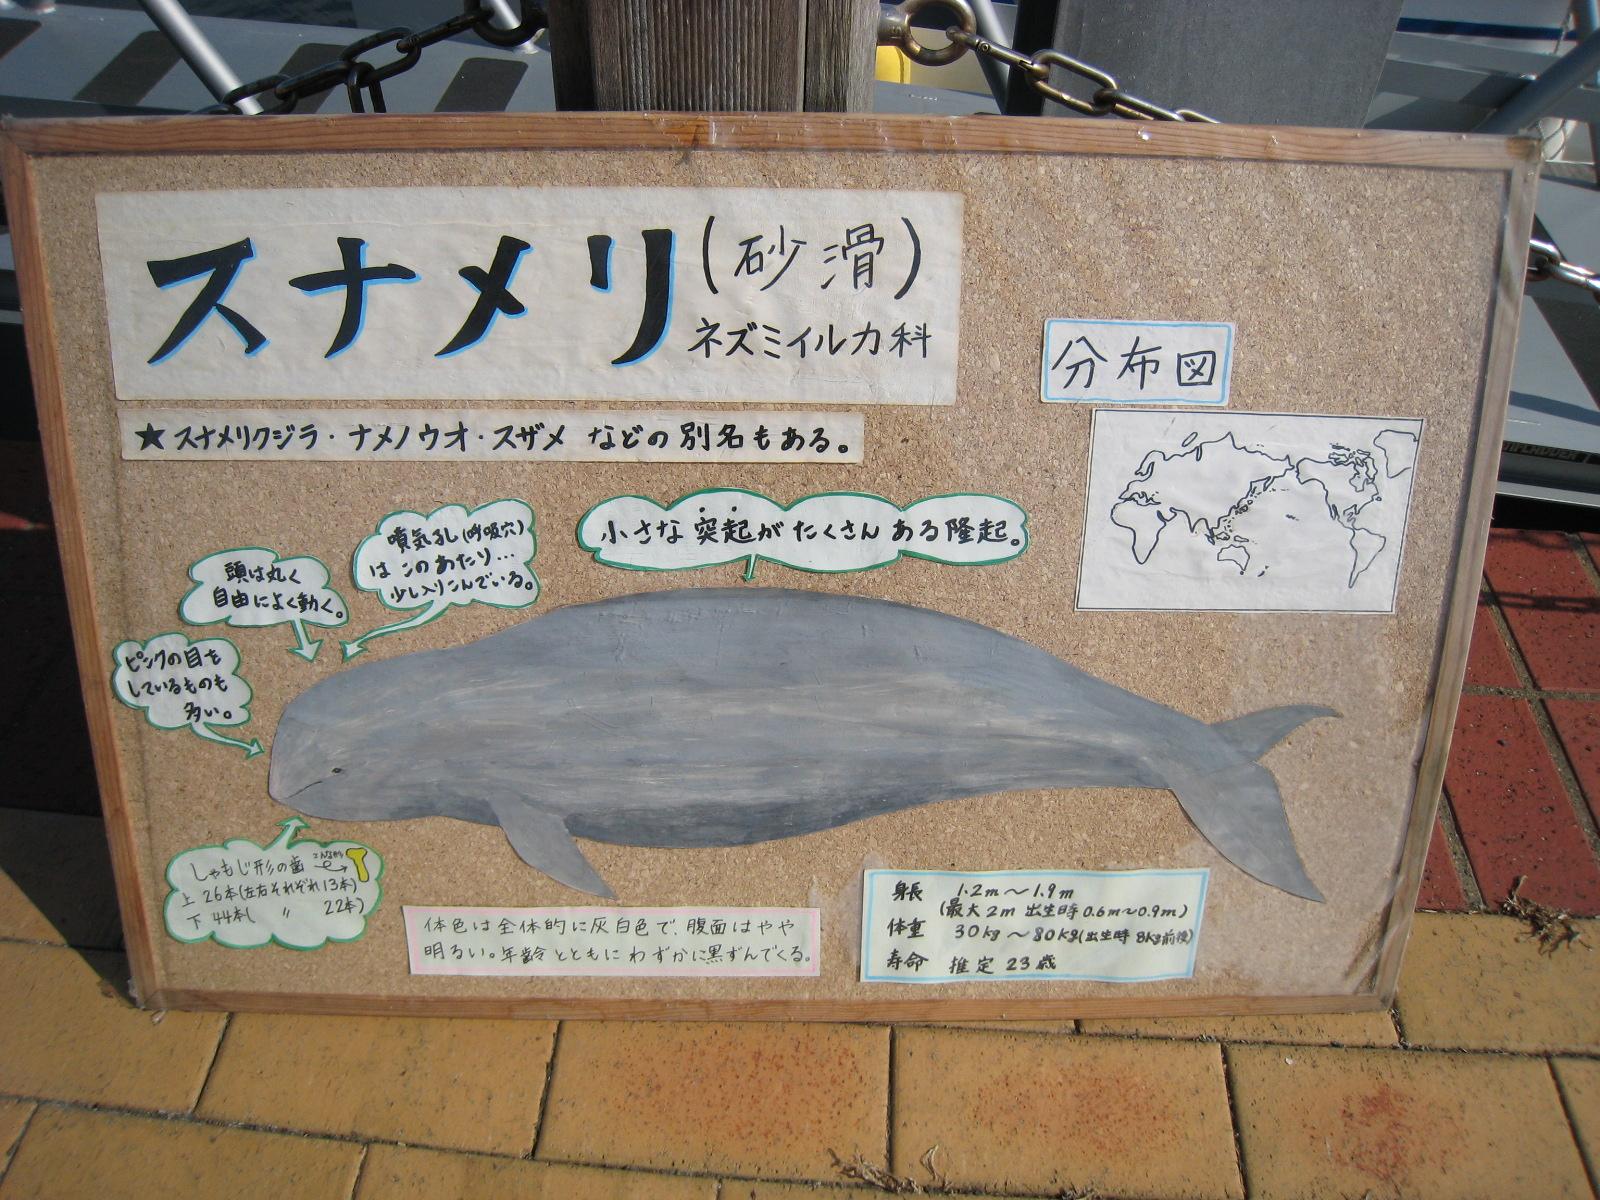 スナメリ(砂滑)
ネズミイルカ科
★スナメリクジラ・ナメノウオ・スザメ などの別名もある。
分布図
小さな突起がたくさんある隆起。
噴気孔(呼吸穴)
はこのあたり…
少し入りこんでいる。
頭は丸く
自由によく動く。
ピンクの目を
しているものも
多い。
しゃもじ形の歯
上 26本(左右それぞれ13本)
下 44本( 〃 22本)
体色は全体的に灰白色で、腹面はやや
明るい。年齢とともにわずかに黒ずんでくる。
身長 1.2m〜1.9m
(最大2m 出生時0.6m〜0.9m)
体重 30kg〜80kg(出生時 8kg前後)
寿命 推定 23歳